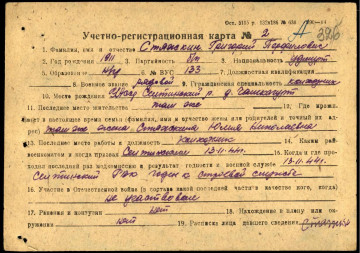 Учетно-регистрационная карта № 2
1. Фамилия, имя и отчество Стяжкин Григорий
2. Год рождения 1911 3. Партийность 4. Национальность удмурт
5. Образование 6. № ВУС 133 7. Должностная квалификация
8. Воинское звание рядовой 9. Гражданская специальность
10. Место рождения УАССР Селтинский р. д.
11. Последнее место жительства там же 12. Где проживает
в настоящее время семья (фамилия, имя и отчество жены или родителей и точный их адрес)
там же жена Юлия Николаевна
13. Последнее место работы и должность колхозник 14. Каким райвоенкоматом
и когда призван Селтинским 13-11-44г. 15. Когда и где проходил
последний раз медкомиссию и результат годности к военной службе 13-11-44г.
Селтинский РВК годен к строевой службе
16. Участие в Отечественной войне (в составе какой последней части, в качестве кого, когда)
не участвовал
17. Ранения и контузии нет 18. Нахождение в плену или окружении
нет 19. Расписка лица давшего сведения